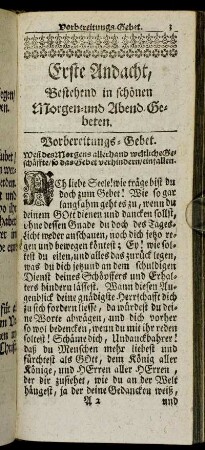 Vorbereitungs-Gebet. 3
Erste Andacht,
Bestehend in schönen
Morgen-und Abend Ge-
beten.
Vorbereitungs-Gebet.
Weil des Morgens allerhand weltliche Ge-
schäffte/ so das Gebet verhindern/ einfallen.
ACh liebe Seele! wie träge bist du
doch zum Gebet! Wie so gar
langsahm geht es zu, wenn du
deinem GOtt dienen und dancken sollst,
ohne dessen Gnade du doch des Tages-
Licht weder anschauen, noch dich jetzo re-
gen und bewegen köntest; Ey! wie sol-
test du eilen, und alles das zurück legen,
was du dich jetzund an dem schuldigen
Dienst deines Schöpffers und Erhal-
ters hindern lässest. Wann diesen Au-
genblick deine gnädigste Herrschafft dich
zu sich fordern liesse, da würdest du dei-
ne Worte abwägen, und dich vorher
so wol bedencken, wenn du mit ihr reden
soltest! Schäme dich, Undanckbahrer!
daß du Menschen mehr liebest und
fürchtest als GOtt, dem König aller
Könige, und HErren aller HErren,
der dir zusiehet, wie du an der Welt
hängest, ja der deine Gedancken weiß,
A 2 und